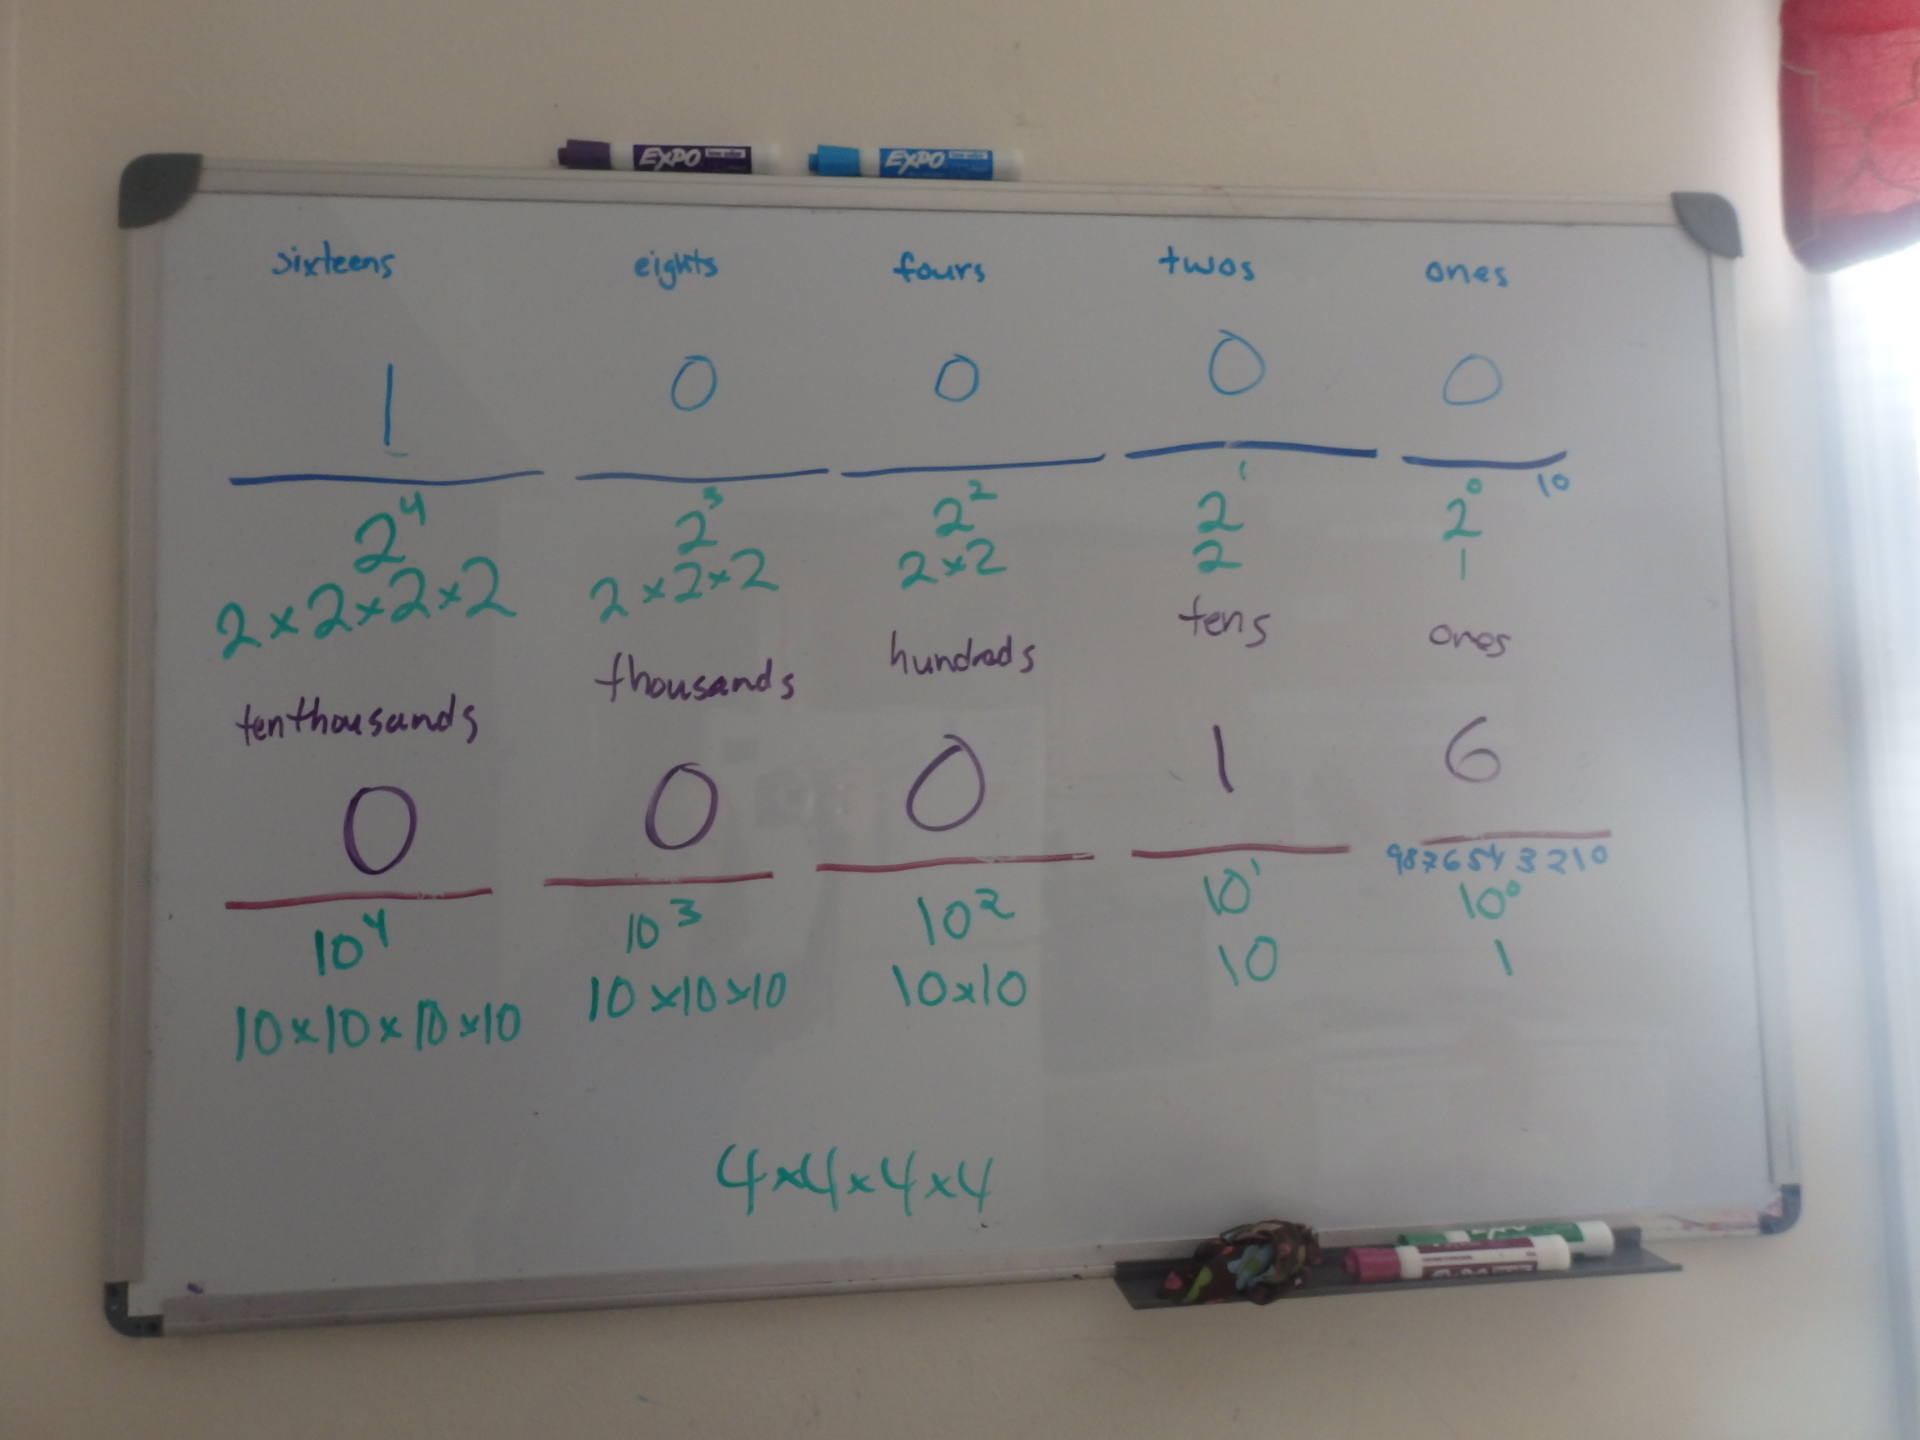 EXPO EXPO
sixteens eights fours twos ones
1 0 0 0 0
10
2⁴ 2³ 2² 2¹ 2⁰
2×2×2×2 2×2×2 2×2 2 1
tenthousands thousands hundreds tens ones
0 0 0 1 6
9876543210
10⁴ 10³ 10² 10¹ 10⁰
10×10×10×10 10×10×10 10×10 10 1
4×4×4×4